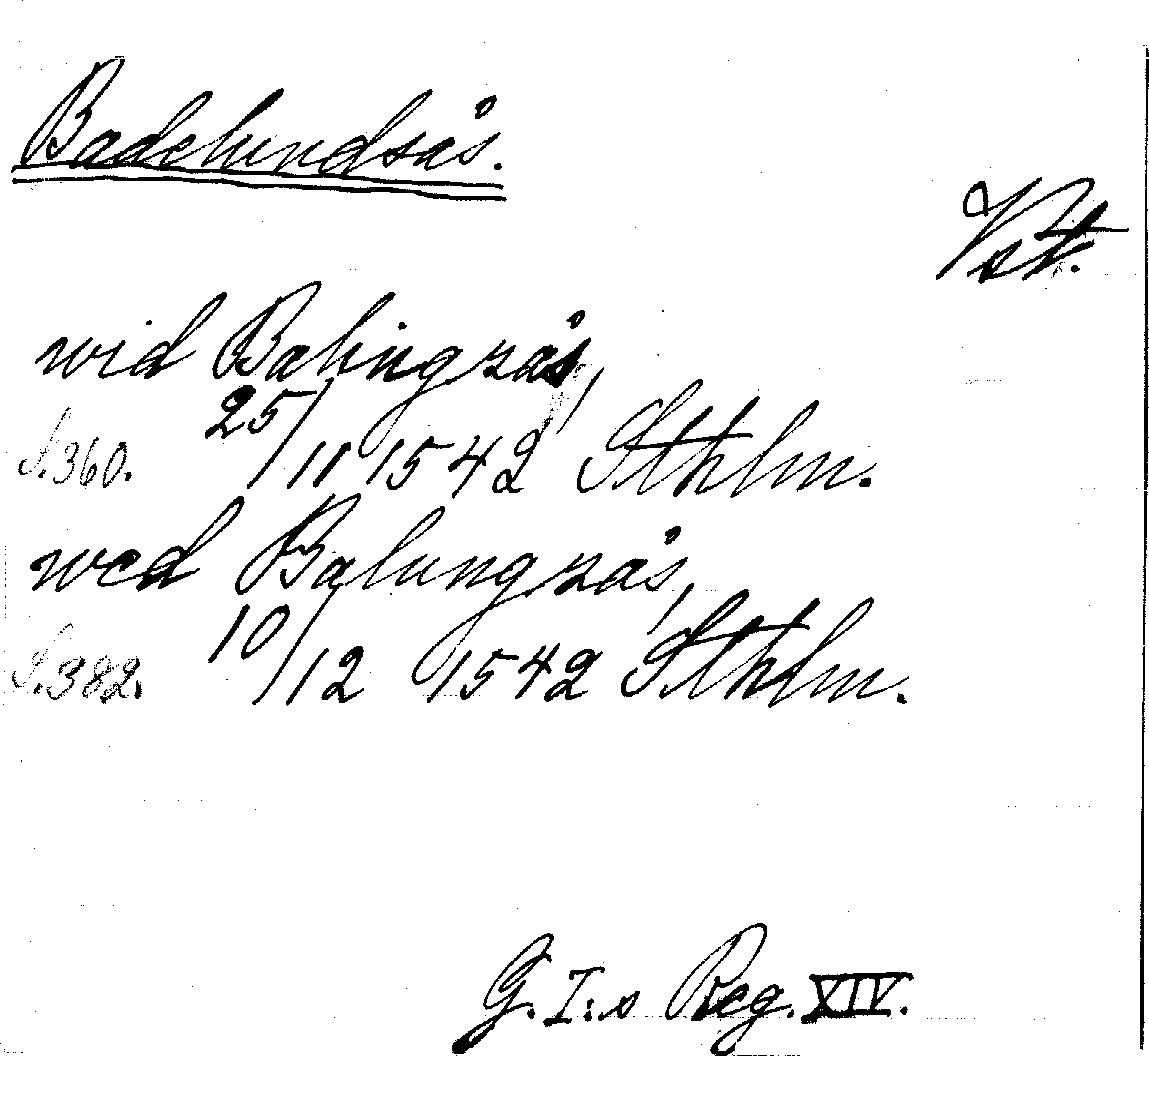 Badelundsås.
Vst.
wid Balingzås,
S.360. 25/11 1542 Sthlm.
wed Balungzås,
S.382. 10/12 1542 Sthlm.
G.I:s Reg. XIV.